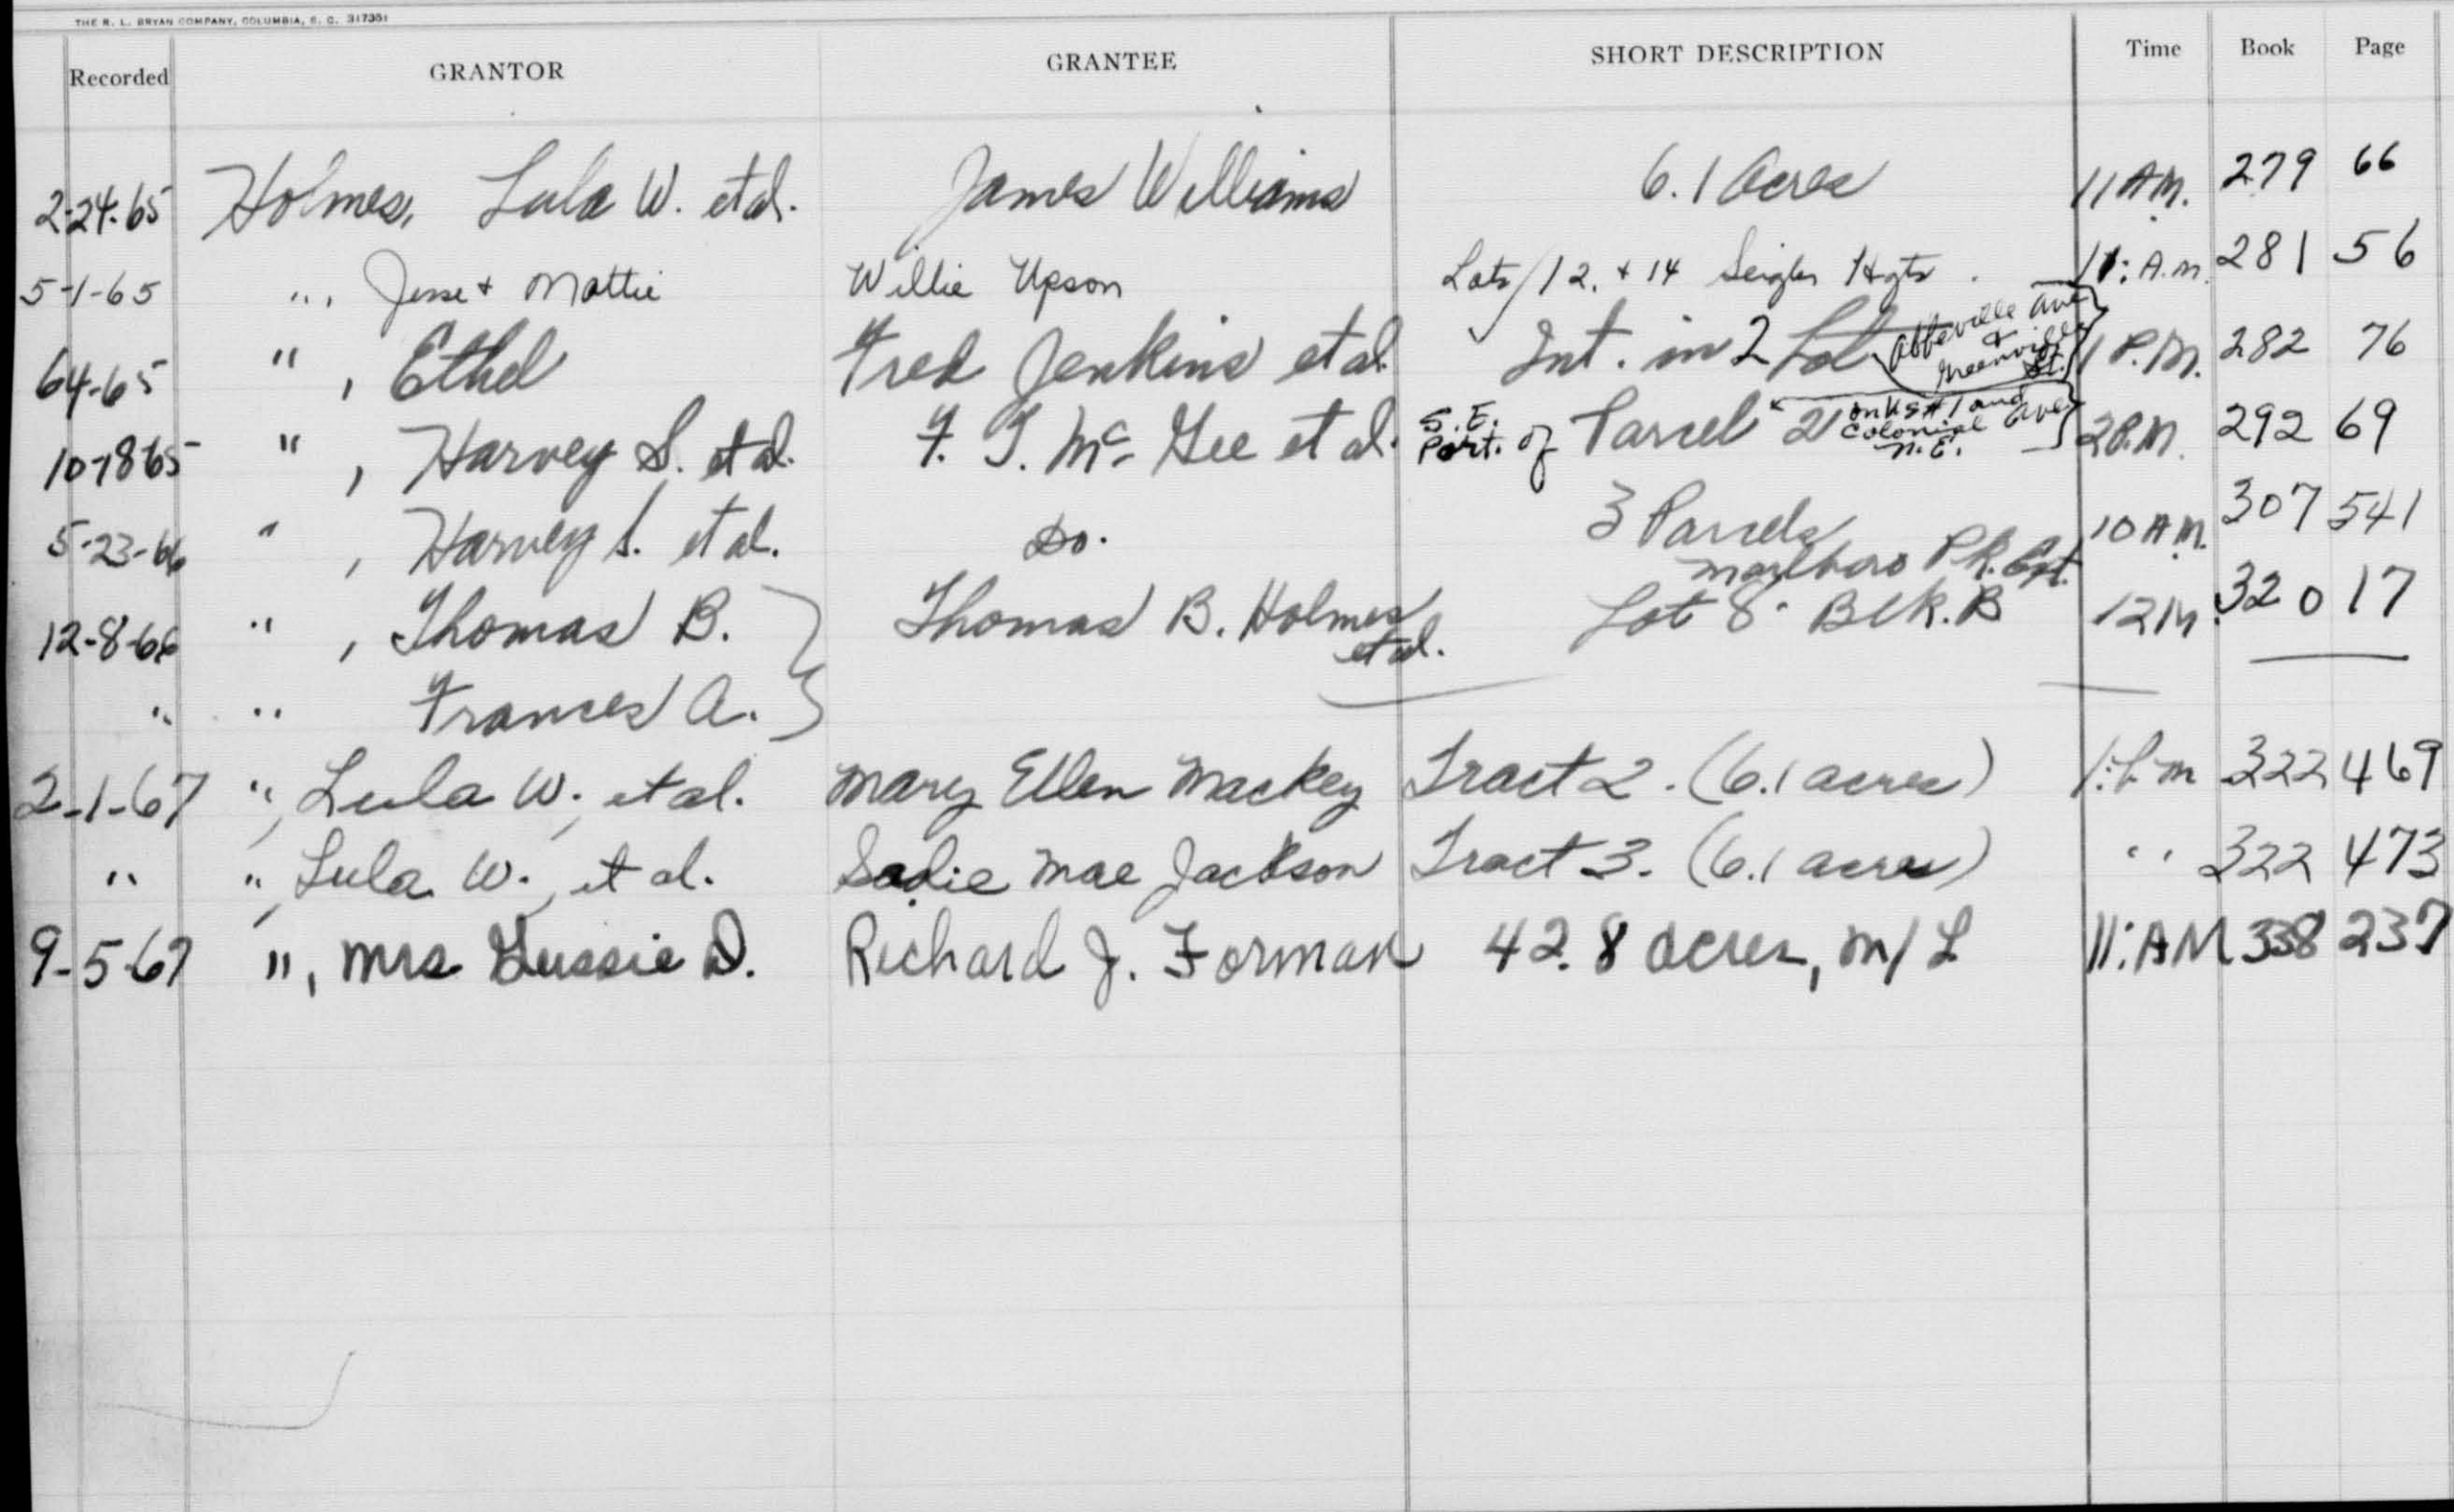 THE R. L. BRYAN COMPANY, COLUMBIA, S. C. 317351
Recorded GRANTOR GRANTEE SHORT DESCRIPTION Time Book Page
2-24-65 Holmes, Lula W. et al. James Williams 6.1 Acres 11 AM. 279 66
5-1-65 " , Jesse + Mattie Willie Upson Lots 12. + 14 Seigler Hgts. 11: A.M. 281 56
6-4-65 " , Ethel Fred Jenkins et al. Int. in 2 Lot Abbeville Ave + Greenville St. 1 P.M. 282 76
10-18-65 " , Harvey S. et al. F. T. McGee et al. S.E. Port. of Parcel 2 on US #1 and Colonial Ave N.E. 2 P.M. 292 69
5-23-66 " , Harvey S. et al. Do. 3 Parcels 10 AM. 307 541
12-8-66 " , Thomas B. Thomas B. Holmes et al. Marlboro Pk. Est. Lot 8 - Blk. B 12 M. 320 17
" " Frances A.
2-1-67 ", Lula W., et al. Mary Ellen Mackey Tract 2. (6.1 acres) 1: P.M 322 469
" ", Lula W., et al. Sadie Mae Jackson Tract 3. (6.1 acres) " 322 473
9-5-67 ", Mrs Gussie D. Richard J. Forman 42.8 acres, M/L 11: AM 338 237